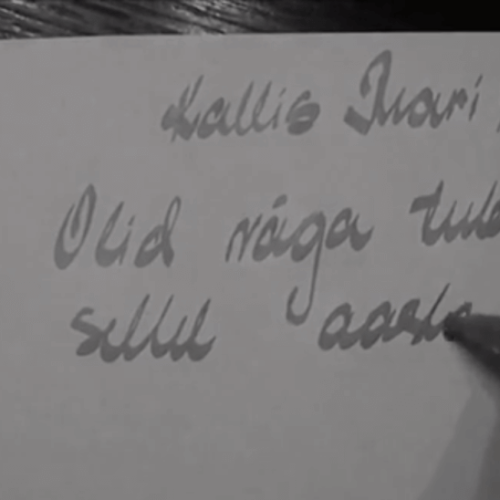 Kallis Mari,
Olid väga tub
sellel aasta